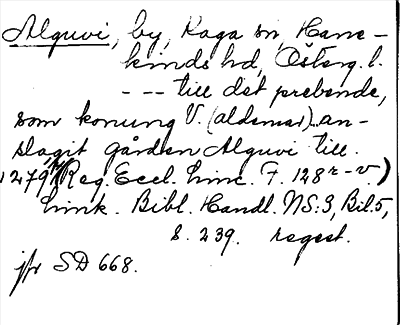 Alguvi, by, Kaga sn, Hane-
kinds hd, Österg. l.
--- till det prebende,
som konung V. (aldemar) an-
slagit gården Alguvi till.
1279 (Reg. Eccl. Linc. F. 128r-v.)
Link. Bibl. Handl. NS:3, Bil.5,
S. 239. regest.
jfr SD 668.